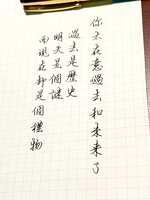 你太在意過去和未來了
過去是歷史
明天是個謎
而現在卻是個禮物